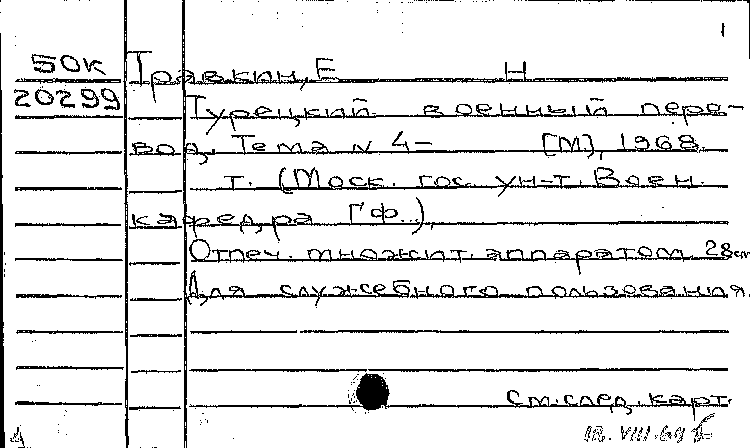 1
50К Травкин, Е Н
20299 Турецкий военный пере-
вод. Тема № 4- [М], 1968.
т. (Моск. гос. ун-т. Воен.
кафедра ГФ..).
Отпеч. множит. аппаратом. 28см
Для служебного пользования.
См. след. карт.
18.VIII.69